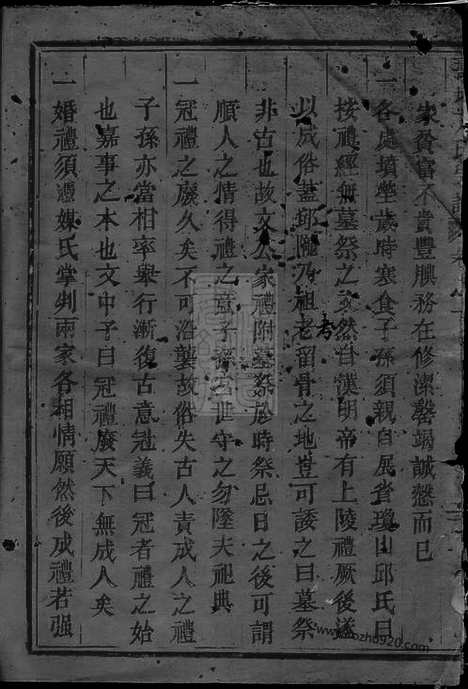 家貧富不貴豐腆務在修潔罄竭誠慤而已
一各處墳塋歲時寒食子孫須親自展省瓊山邱氏曰
按禮經無墓祭之文然自漢明帝有上陵禮厥後遂
以成俗蓋邱隴乃祖考老留骨之地豈可諉之曰墓祭
非古也故文公家禮附墓祭於時祭忌日之後可謂
順人之情得禮之意子孫世守之勿墜夫祀典
一冠禮之廢久矣不可沿襲故俗失古人責成人之禮
子孫亦當相率舉行漸復古意冠義曰冠者禮之始
也嘉事之本也文中子曰冠禮廢天下無成人矣
一婚禮須憑媒氏掌判兩家各相情願然後成禮若强